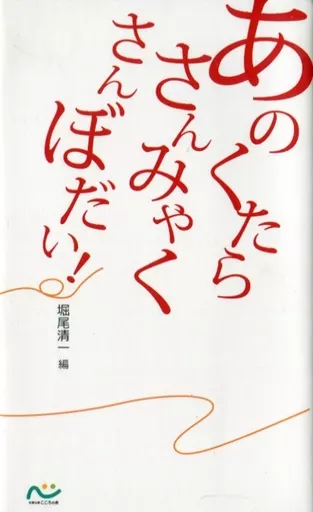 あのくたら
さんみゃく
さん
ぼだい!
堀尾清一 編
こころの会